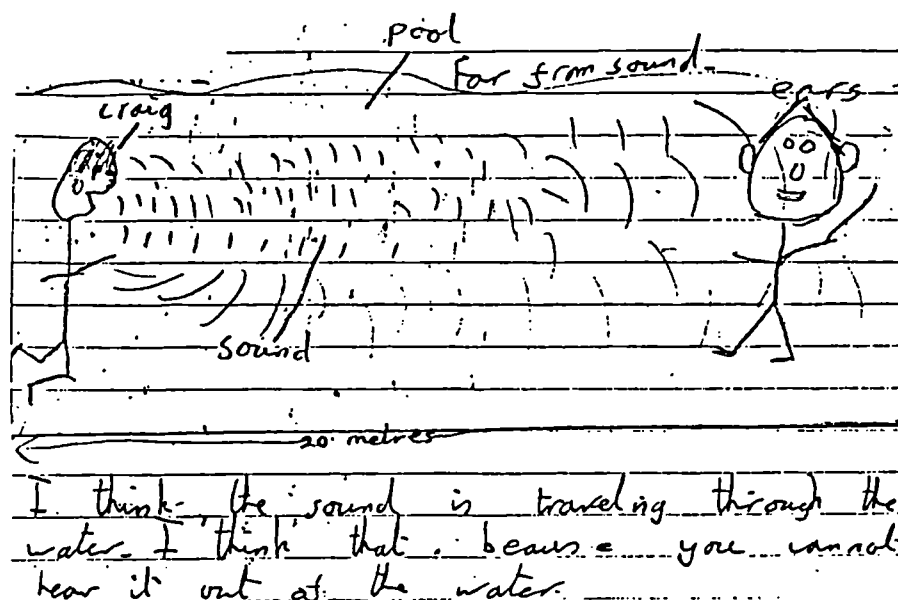 pool
Far from sound
craig
ears
sound
20 metres
I think the sound is traveling through the
water. I think that beause you cannot
hear it out of the water.